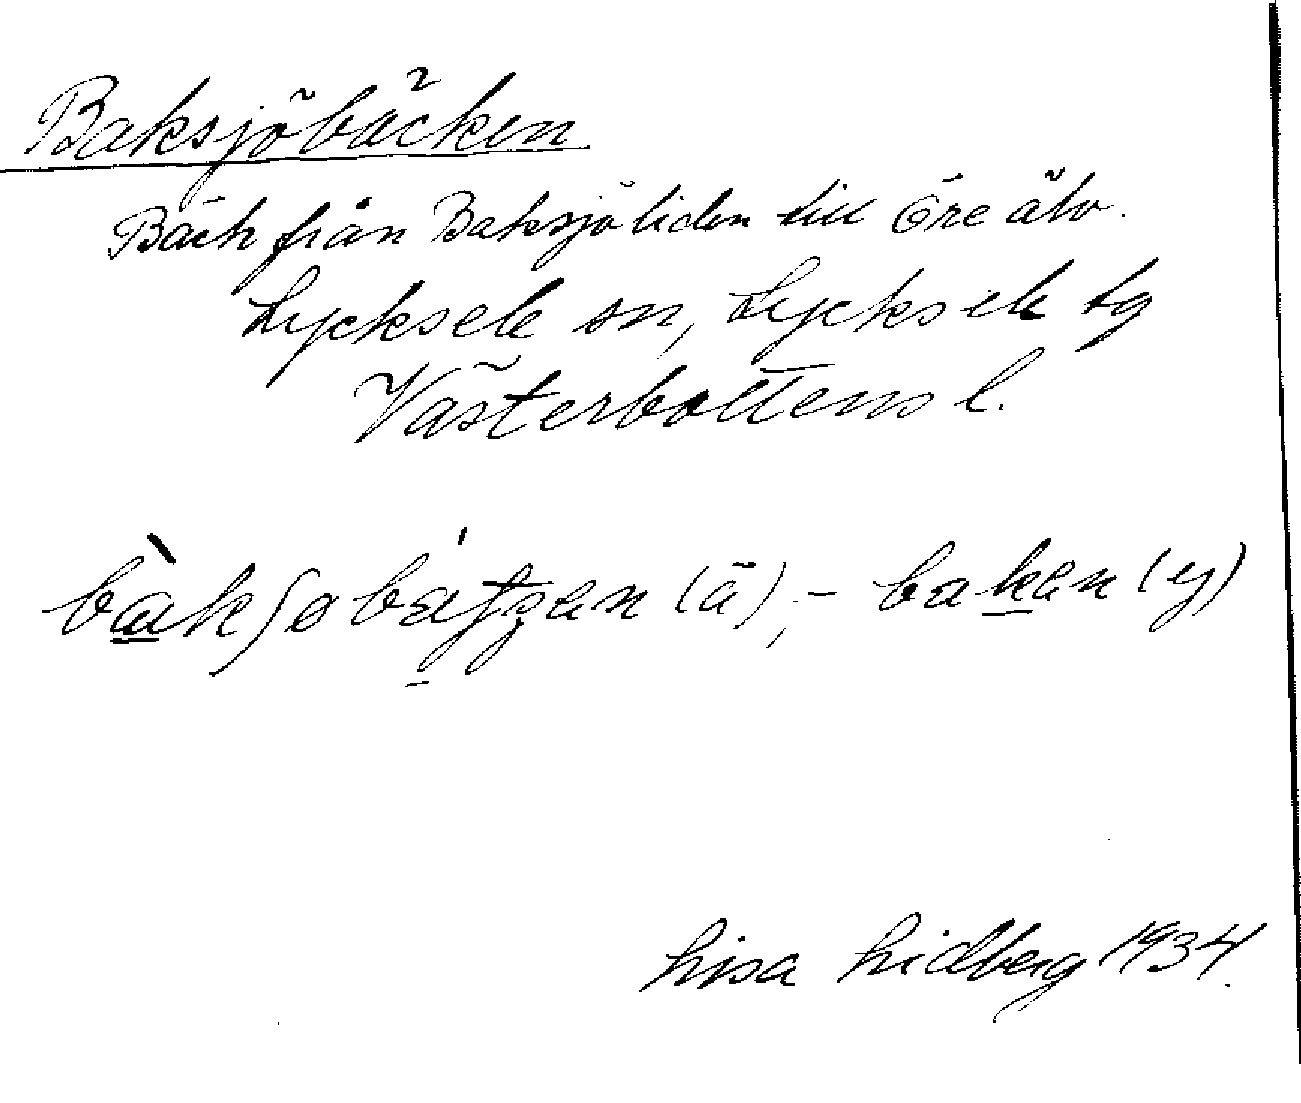 Baksjöbäcken
Bäck från Baksjöliden till Öre älv.
Lycksele sn, Lycksele tg
Västerbottens l.
bàkʃobátʒen (ä), - baken (y)
Lisa Lidberg 1934.